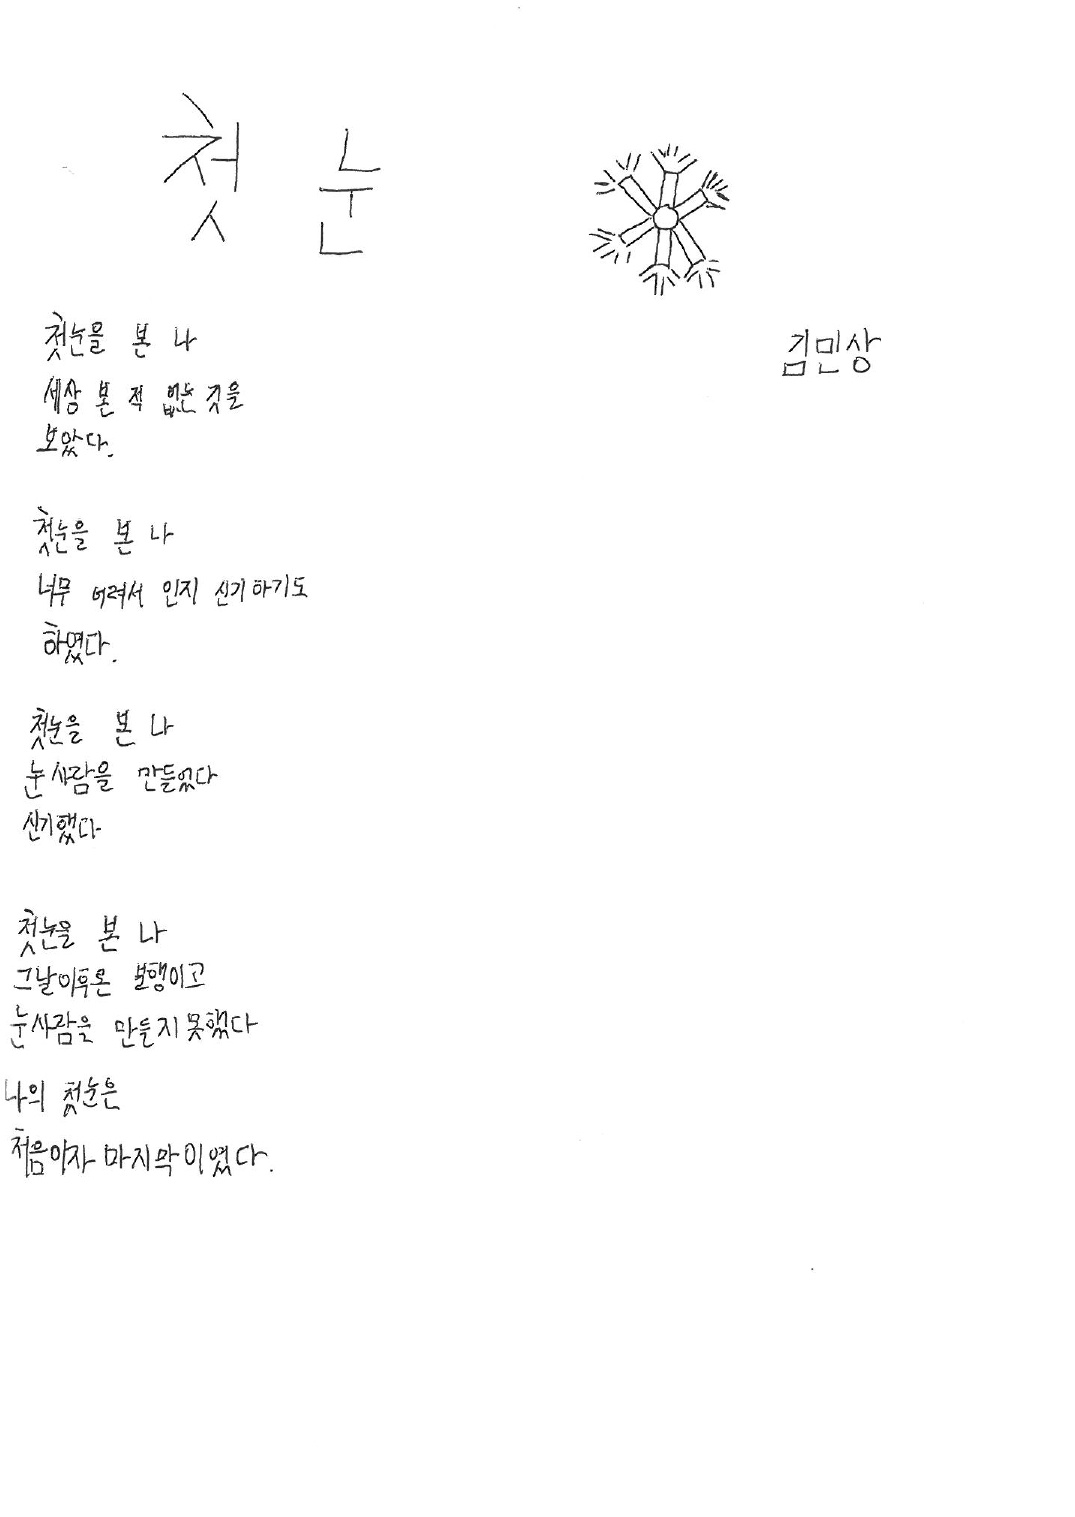 첫 눈
김민상
첫눈을 본 나
세상 본 적 없는 것을
보았다.
첫눈을 본 나
너무 어려서 인지 신기하기도
하였다.
첫눈을 본 나
눈사람을 만들었다
신기했다
첫눈을 본 나
그날이후론 보행이고
눈사람을 만들지 못했다
나의 첫눈은
처음이자 마지막이였다.